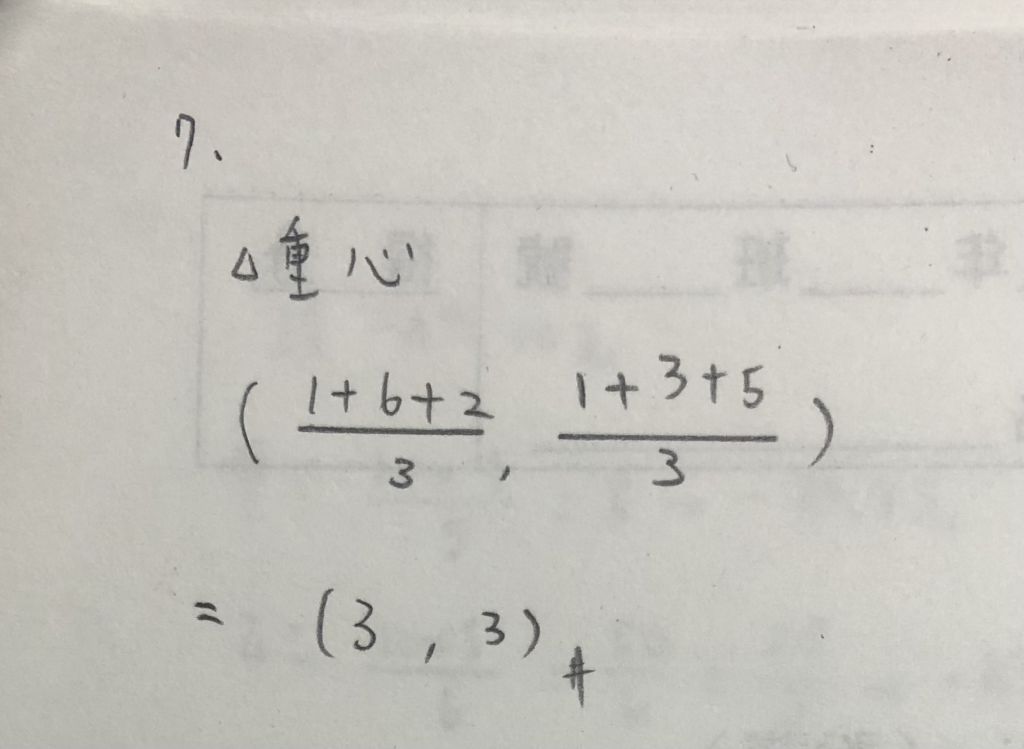 7、
△重心
( 1+6+2/3 , 1+3+5/3 )
= (3 , 3) #